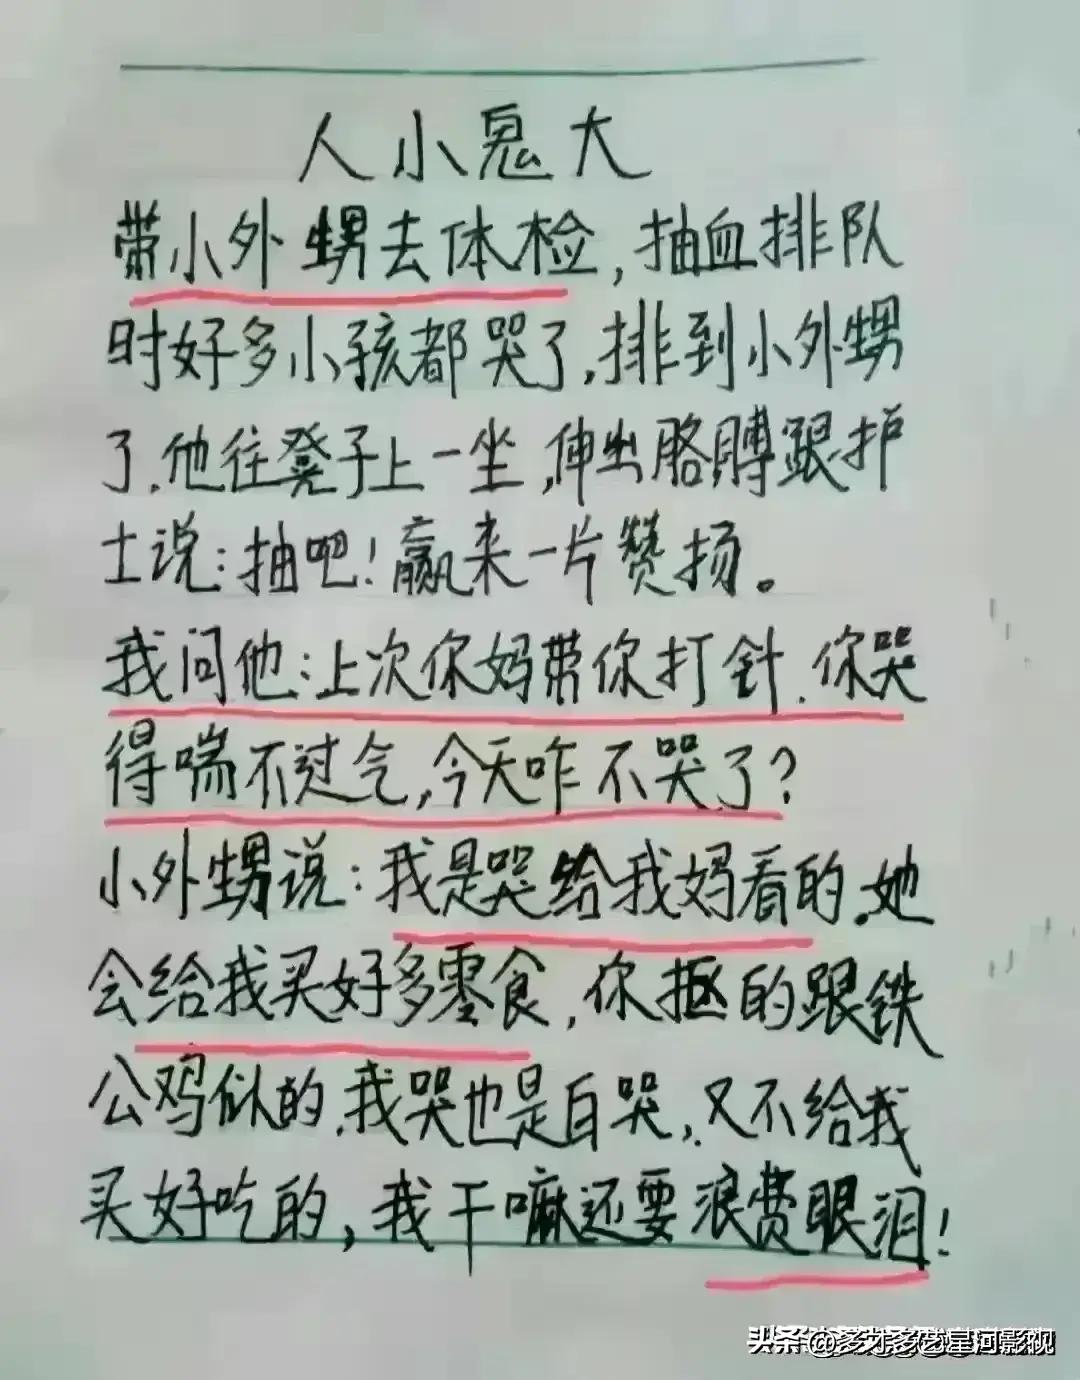 人小鬼大
带小外甥去体检,抽血排队
时好多小孩都哭了,排到小外甥
了.他往凳子上一坐,伸出胳膊跟护
士说:抽吧!赢来一片赞扬。
我问他:上次你妈带你打针.你哭
得喘不过气,今天咋不哭了?
小外甥说:我是哭给我妈看的.她
会给我买好多零食,你抠的跟铁
公鸡似的.我哭也是白哭,又不给我
买好吃的,我干嘛还要浪费眼泪!
头条@多才多艺星河影视